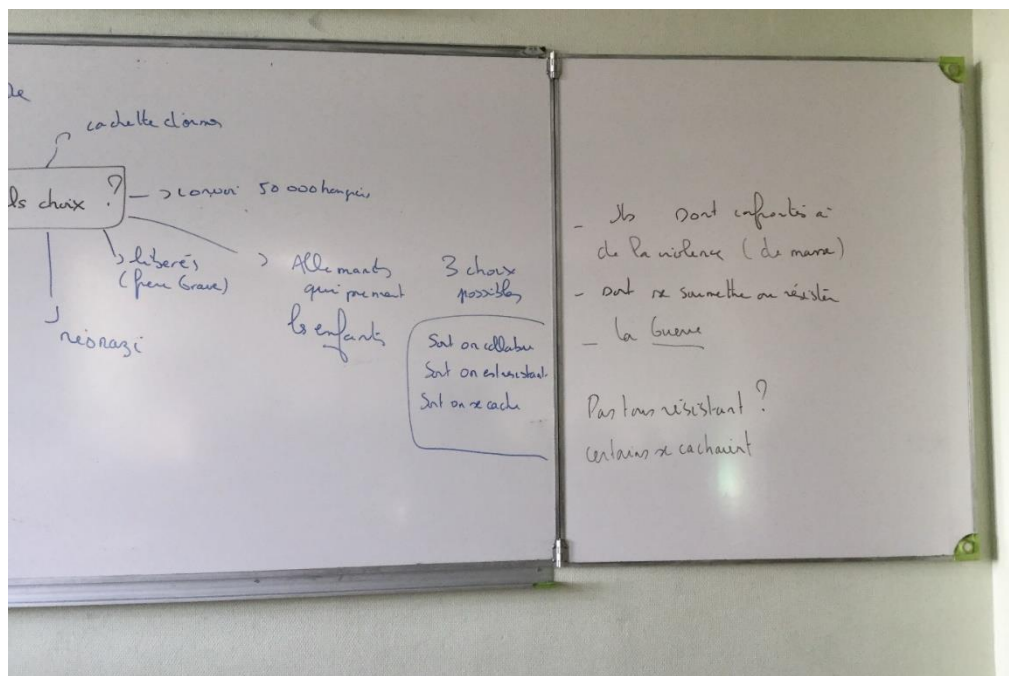 de
cachette d'armes
ls choix ?
-> convoi 50 000 hongrois
> libérés
(frère Grave)
néonazi
> Allemants
qui prennent
les enfants
3 choix
possibles
Soit on collabore
Soit on est résistant
Soit on se cache
- Ils sont confrontés à
de la violence (de masse)
- Doit se soumettre ou résister
- La Guerre
Pas tous résistant ?
certains se cachaient